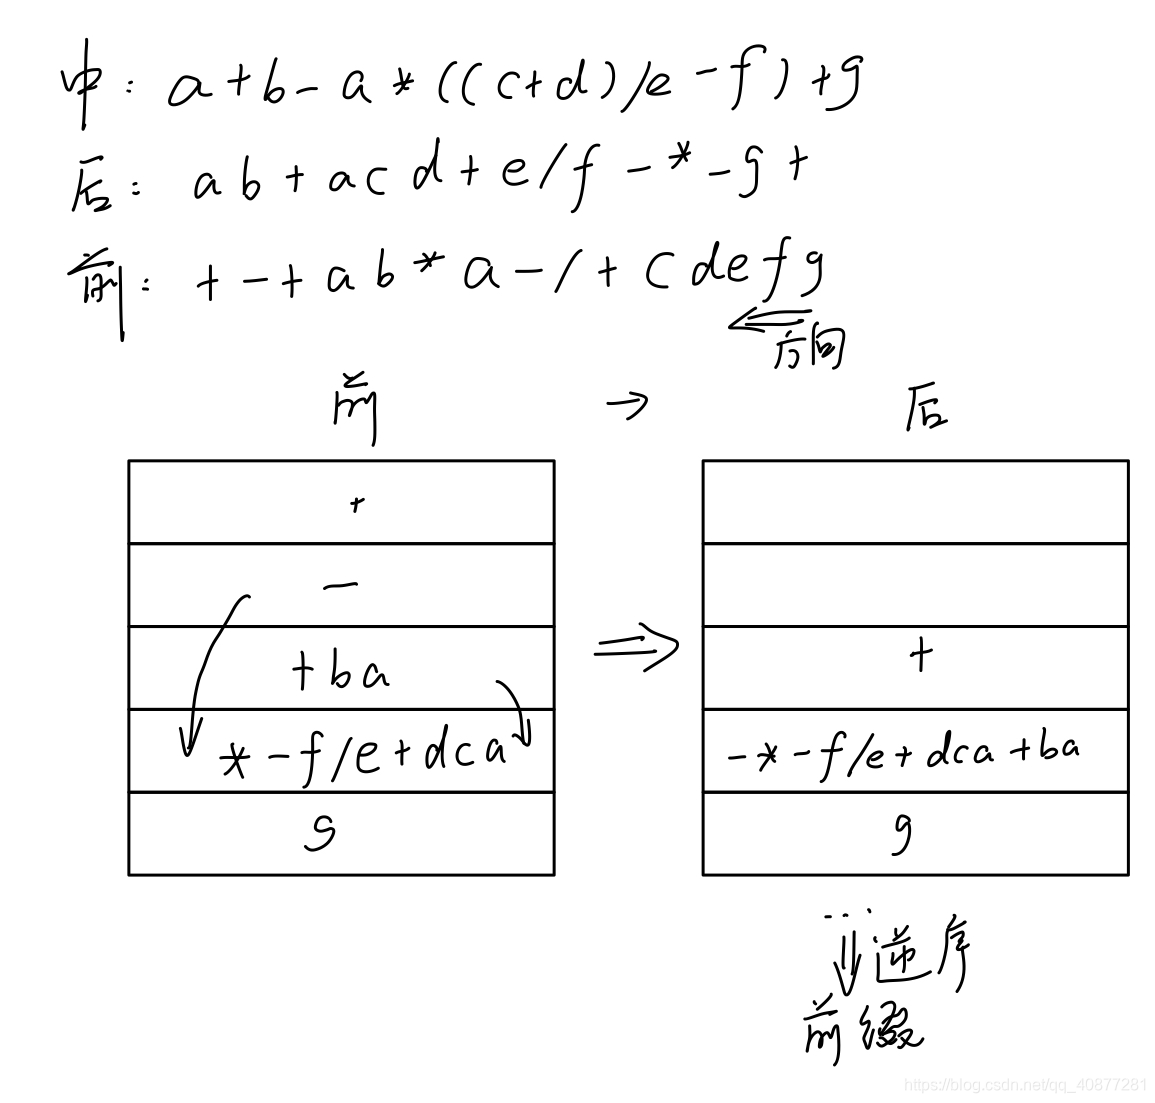 中: a+b-a*((c+d)/e-f)+g
后: ab+acd+e/f-*-g+
前: +-+ab*a-/+cdefg
方向
前 → 后
+
-
+ba
+
*-f/e+dca
-*-f/e+dca+ba
g
g
...
逆序
前缀
https://blog.csdn.net/qq_40877281